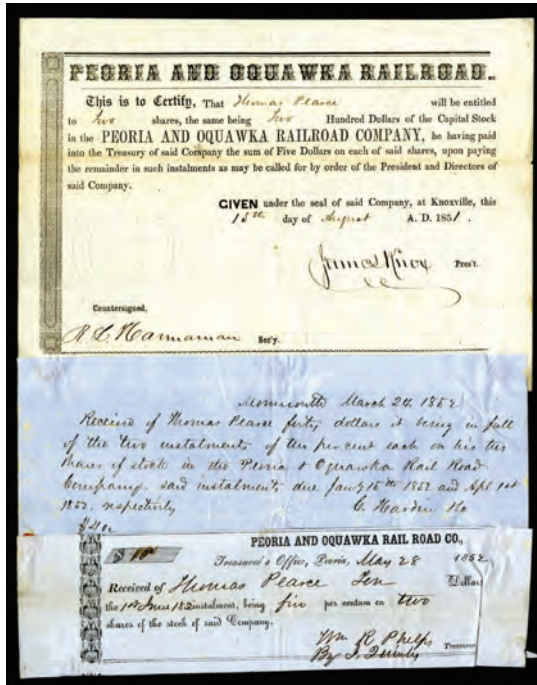 PEORIA AND OQUAWKA RAILROAD.
This is to Certify, That Thomas Pearce will be entitled
to two shares, the same being two Hundred Dollars of the Capital Stock
in the PEORIA AND OQUAWKA RAILROAD COMPANY, he having paid
into the Treasury of said Company the sum of Five Dollars on each of said shares, upon paying
the remainder in such instalments as may be called for by order of the President and Directors of
said Company.
GIVEN under the seal of said Company, at Knoxville, this
15th day of August A. D. 1851.
James Knox Pres't.
Countersigned,
R. L. Hannaman Sec'y.
Monmouth March 24, 1852
Received of Thomas Pearce forty dollars it being in full
of the two instalments of ten per cent each on his two
shares of stock in the Peoria & Oquawka Rail Road
Company. said instalments due Jany 15th 1852 and Apl 1st
1852. respectively
C. Hardin
$40
PEORIA AND OQUAWKA RAIL ROAD CO.,
$ 10 Treasurer's Office, Peoria, May 28 1852
Received of Thomas Pearce Ten Dollars
the 1st June 1852 instalment, being five per centum on two
shares of the stock of said Company.
Wm R Phelps Treasurer
By J. Quinby